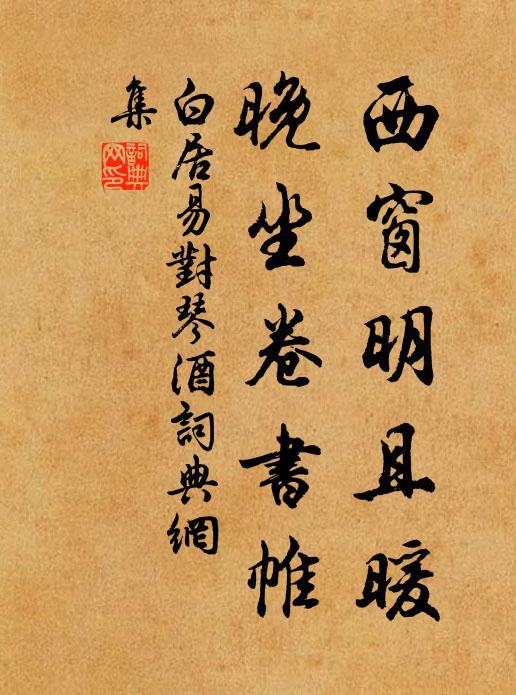 西窗明且暖
晚坐卷書帷
白居易對琴酒詞典網
集
詞典網印